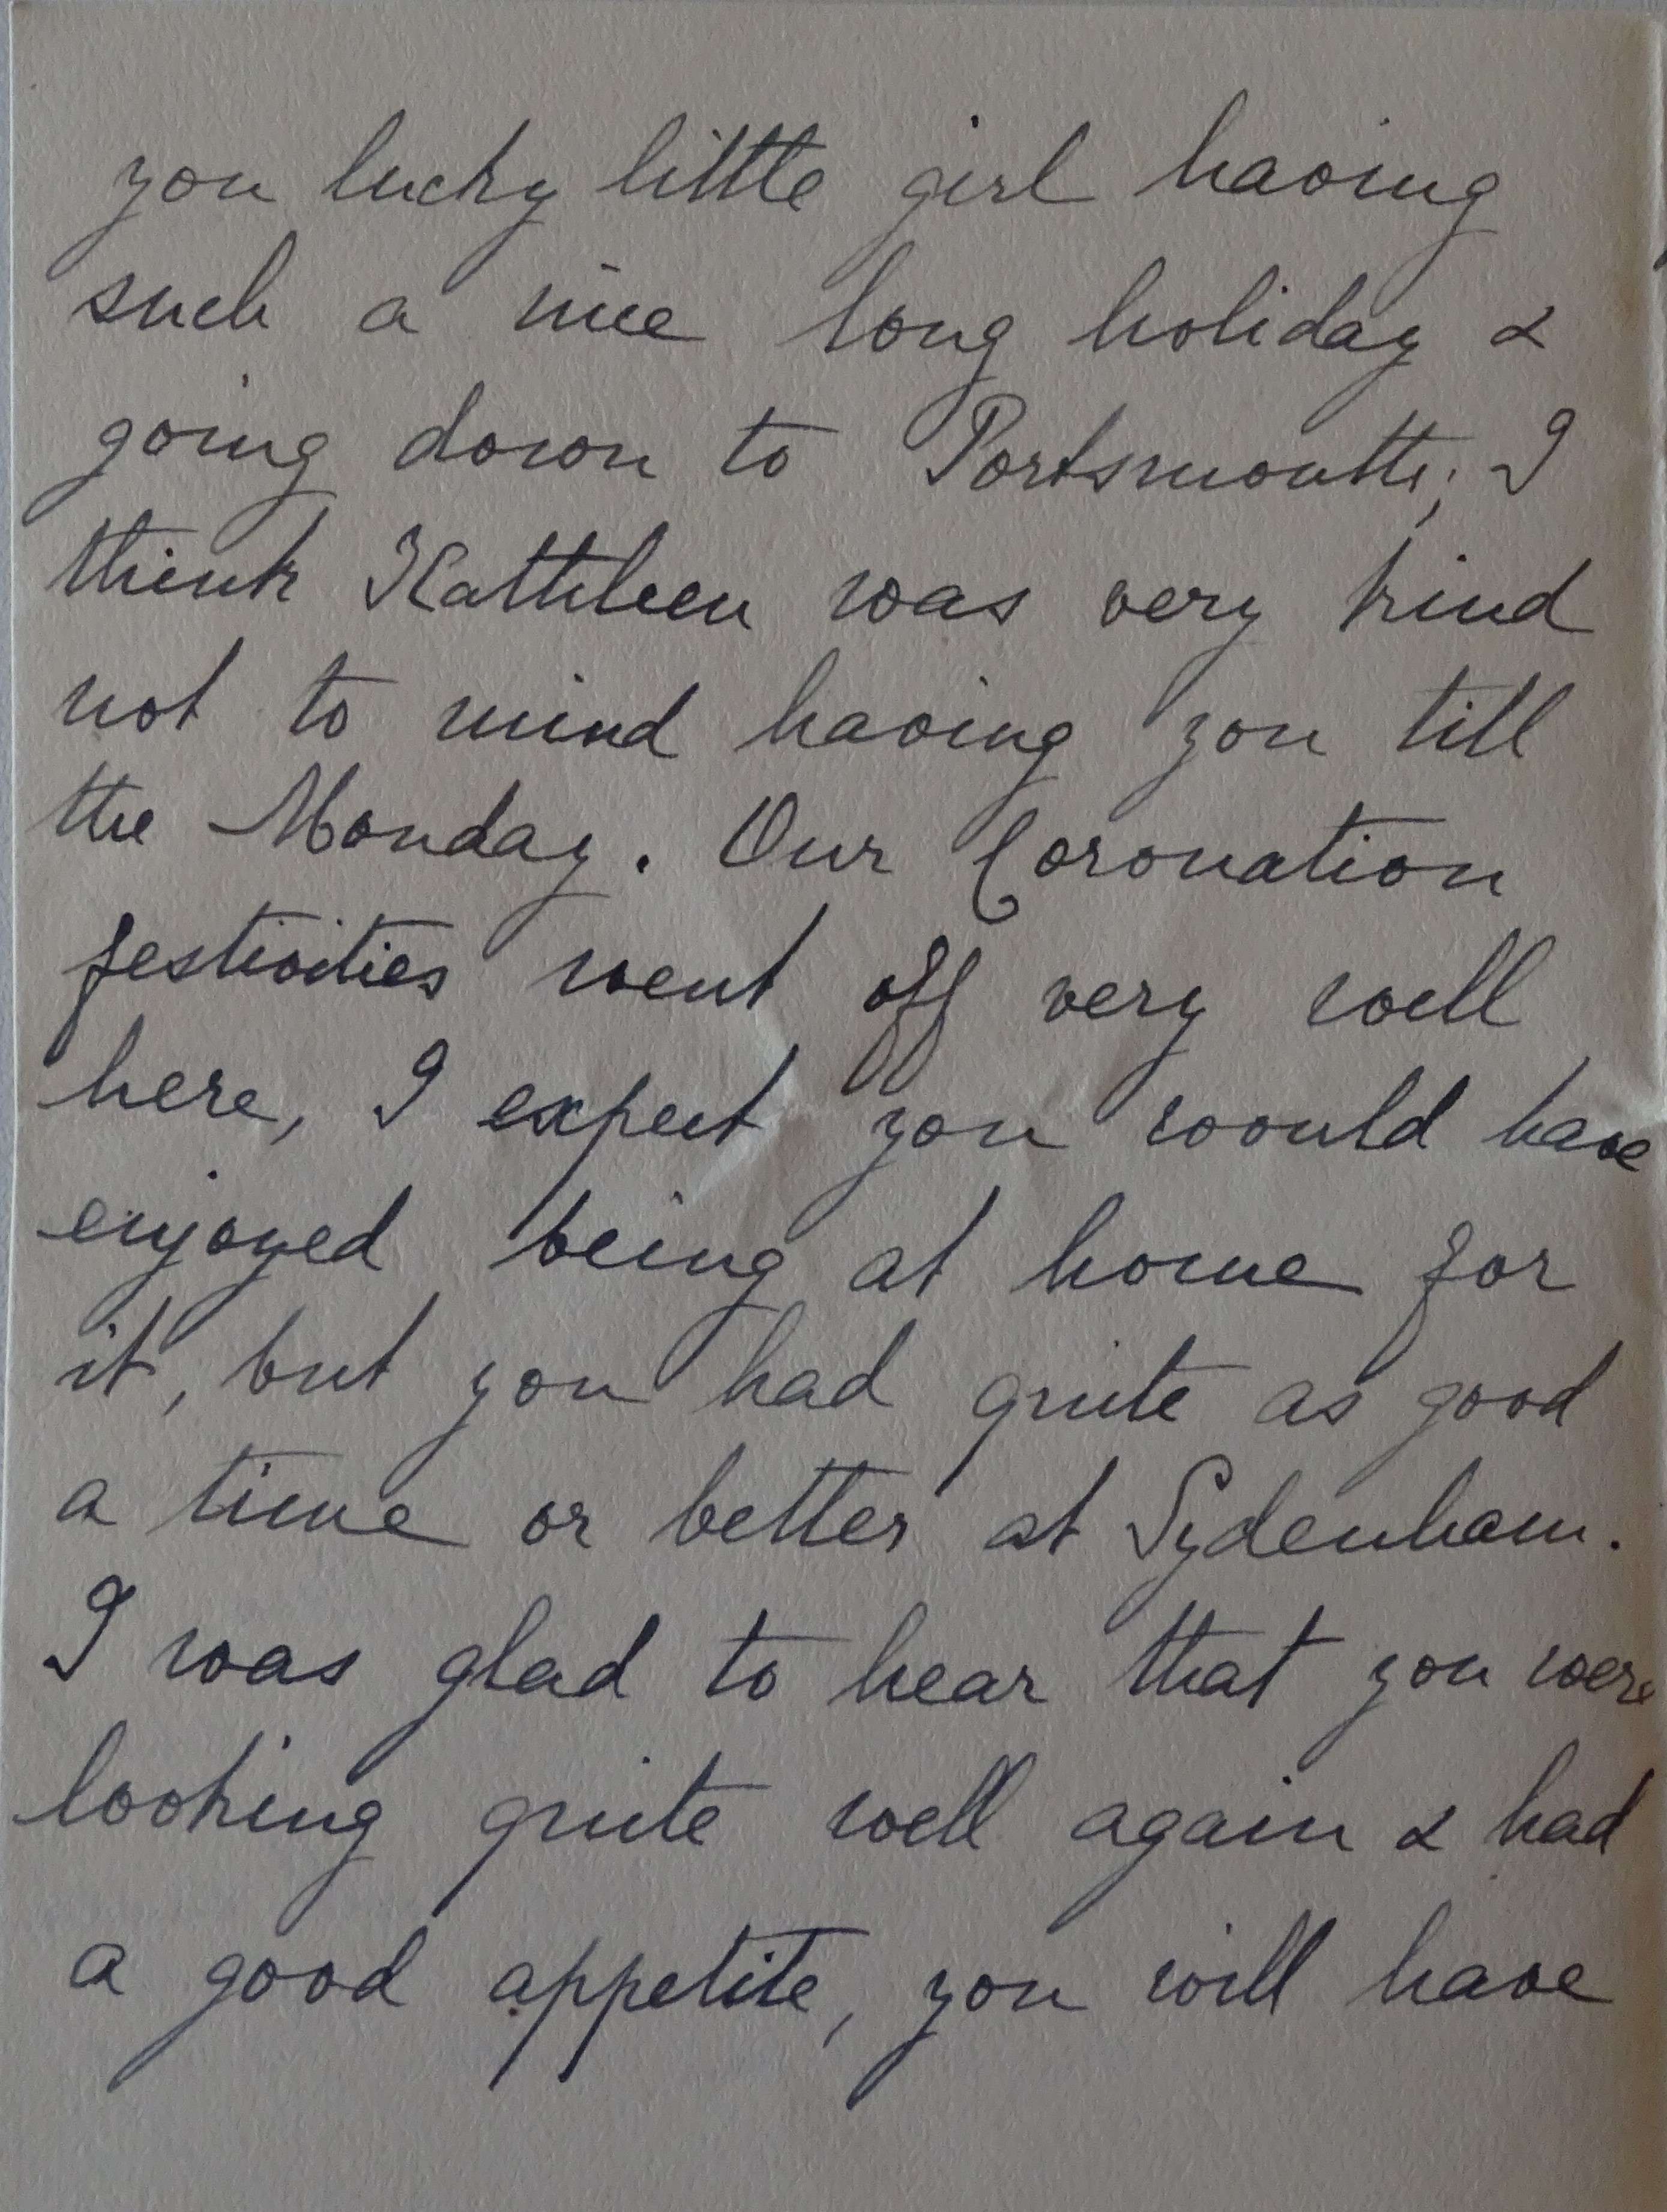 you lucky little girl having
such a nice long holiday &
going down to Portsmouth; I
think Kathleen was very kind
not to mind having you till
the Monday. Our Coronation
festivities went off very well
here, I expect you would have
enjoyed being at home for
it, but you had quite as good
a time or better at Sydenham.
I was glad to hear that you were
looking quite well again & had
a good appetite, you will have